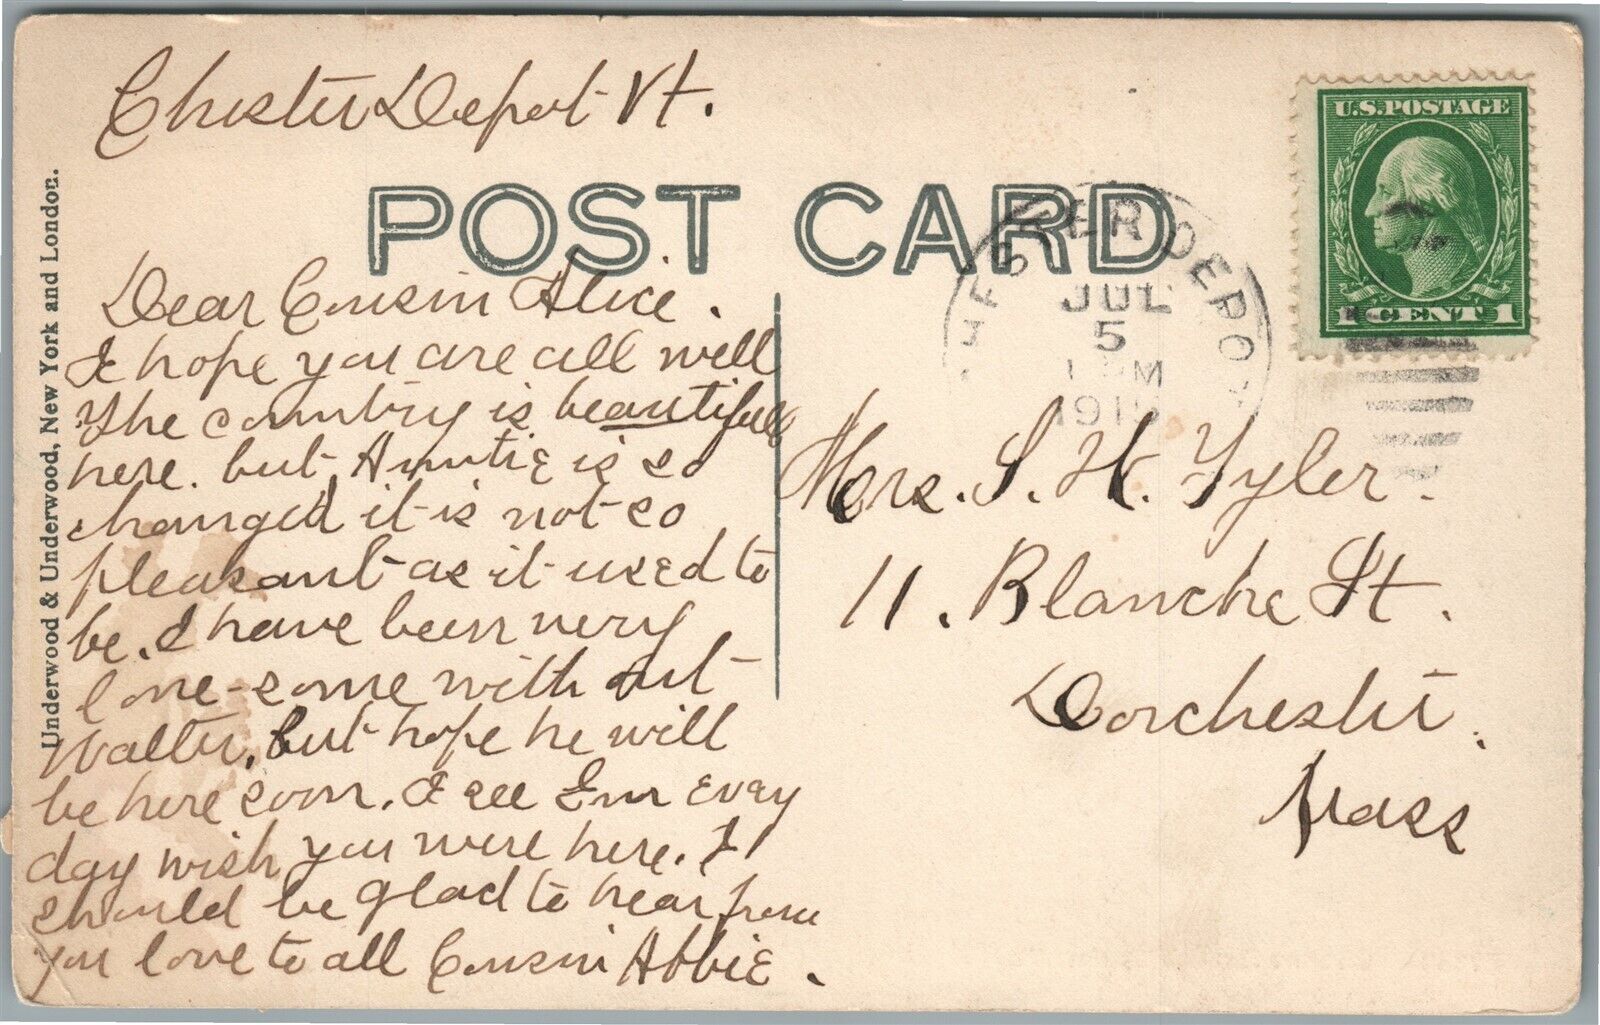 Chester Depot Vt.
POST CARD
Underwood & Underwood, New York and London.
U.S. POSTAGE
1 CENT 1
CHESTER DEPOT
JUL
5
PM
Dear Cousin Alice.
I hope you are all well
The country is beautiful
here. but Auntie is so
changed it is not so
pleasant as it used to
be. I have been very
lone-some with out
Walter, but hope he will
be here soon. I see Em every
day wish you were here. I
should be glad to hear from
you love to all Cousin Abbie.
Mrs. S. H. Tyler.
11. Blanche St.
Dorchester.
Mass